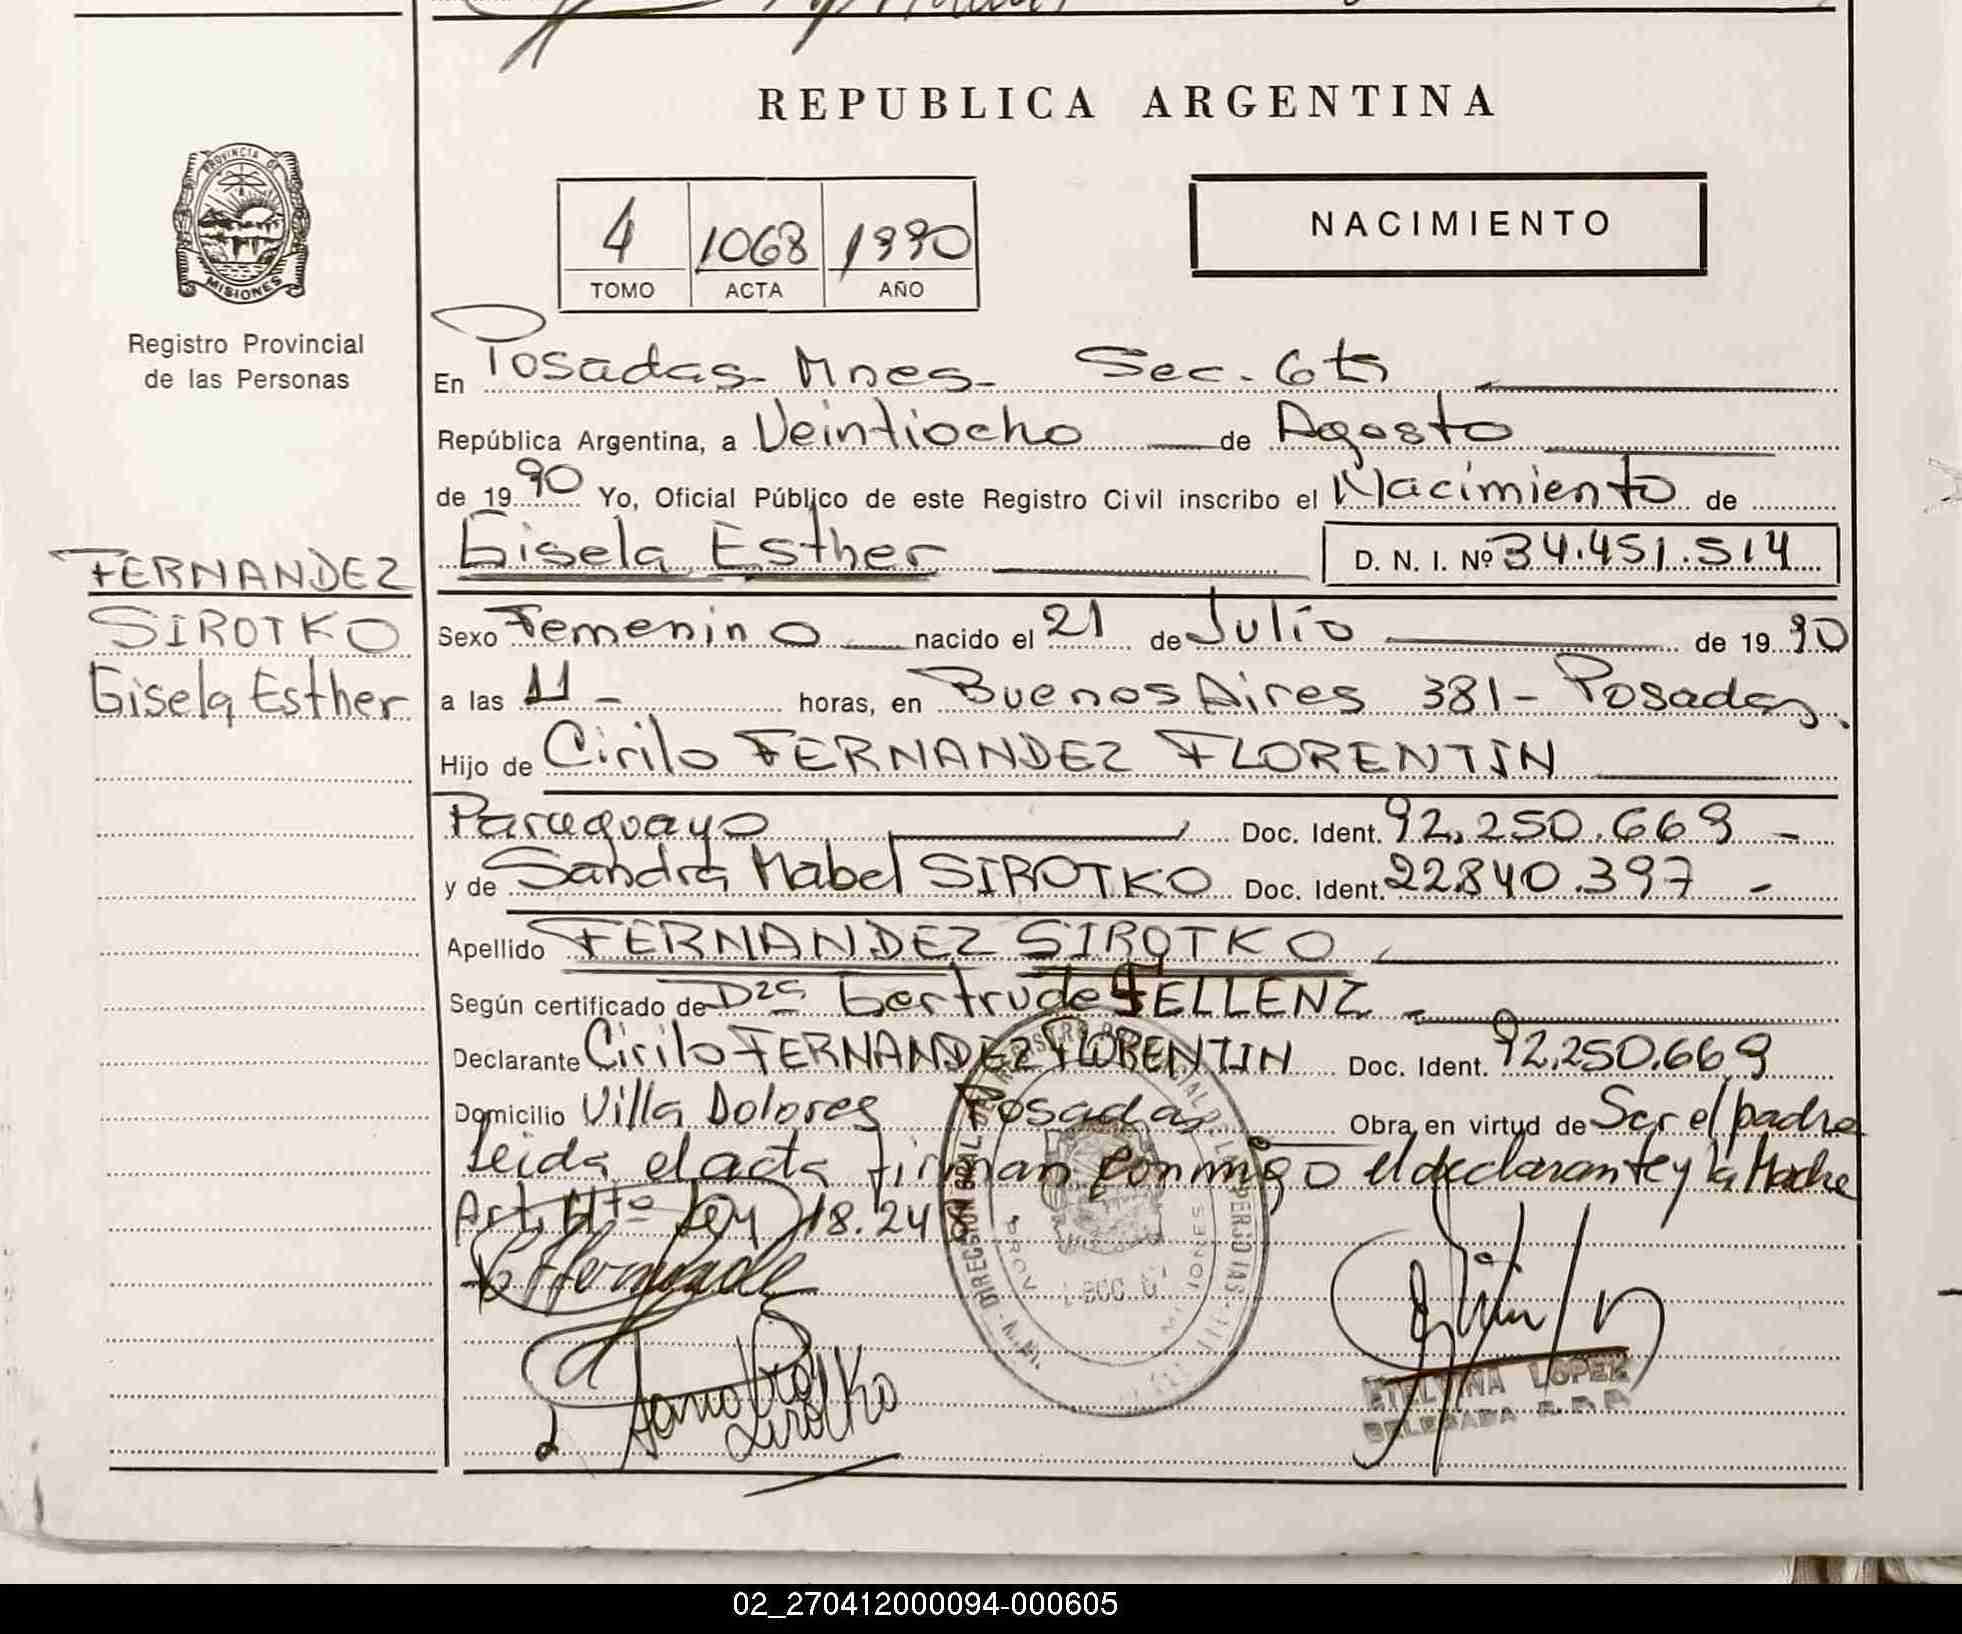 REPUBLICA ARGENTINA
PROVINCIA DE
MISIONES
Registro Provincial
de las Personas
4 1068 1990
TOMO ACTA AÑO
NACIMIENTO
En Posadas - Mnes - Sec. 6ta
República Argentina, a Veintiocho de Agosto
de 1990 Yo, Oficial Público de este Registro Civil inscribo el Nacimiento de
Gisela Esther D. N. I. Nº 34.451.514
FERNANDEZ
SIROTKO
Gisela Esther
Sexo Femenino nacido el 21 de Julio de 1990
a las 11 - horas, en Buenos Aires 381 - Posadas.
Hijo de Cirilo FERNANDEZ FLORENTIN
Paraguayo Doc. Ident. 92.250.669 -
y de Sandra Mabel SIROTKO Doc. Ident. 22840.397 -
Apellido FERNANDEZ SIROTKO
Según certificado de Dra Gertrude FELLENZ -
Declarante Cirilo FERNANDEZ FLORENTIN Doc. Ident. 92.250.669
Domicilio Villa Dolores Posadas Obra en virtud de Ser el padre
Leida el acta firman conmigo el declarante y la Madre
Art. 4to Ley 18.248
Sirotko
ETELVINA LOPEZ
DELEGADA
02_270412000094-000605